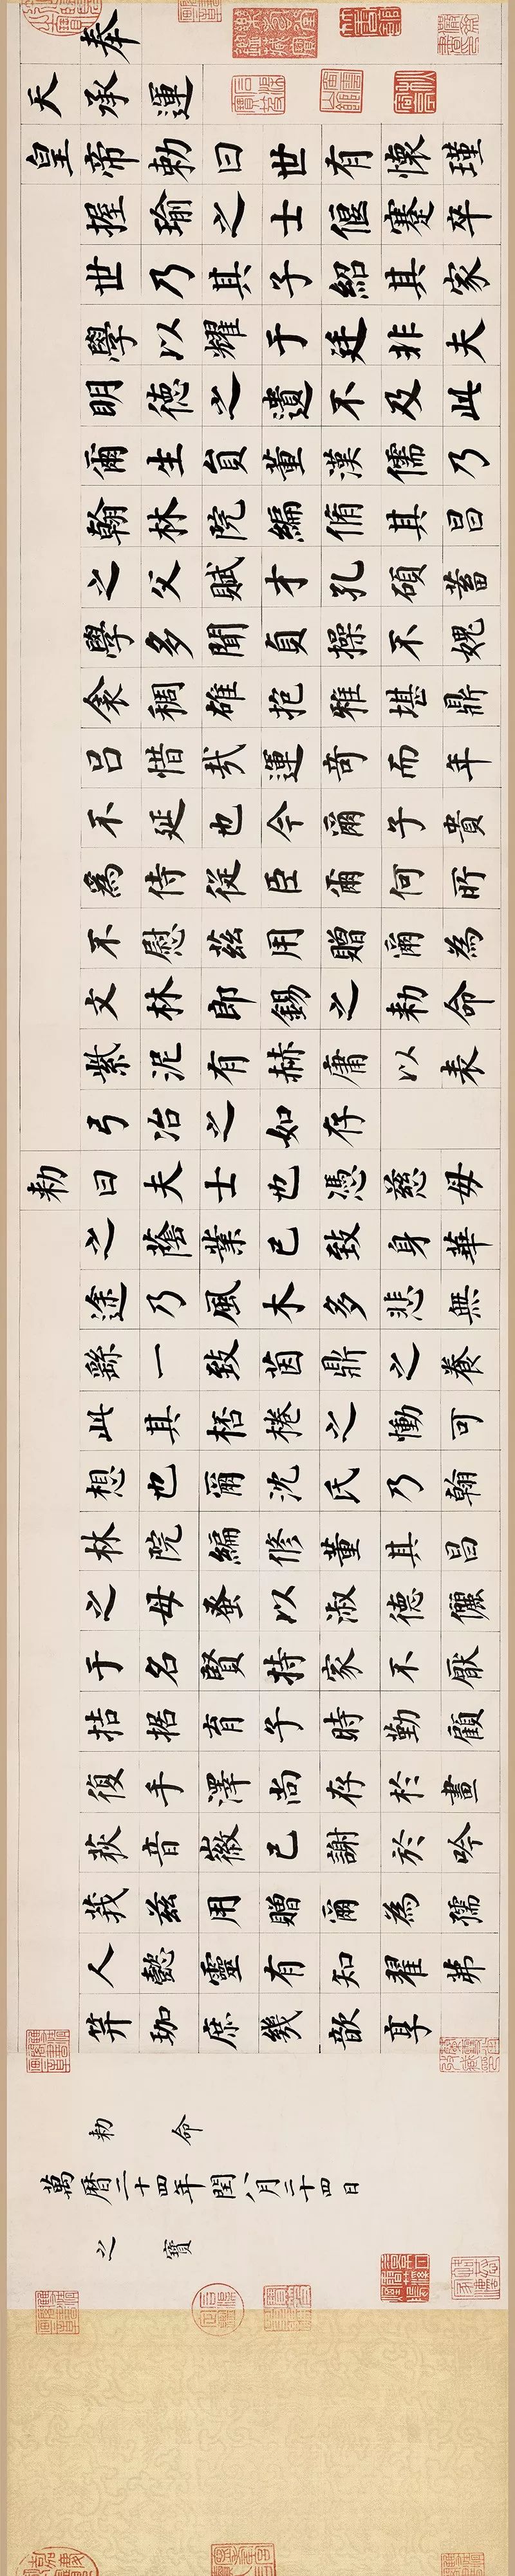 奉
天承運
皇帝勅曰世有懷瑾
握瑜之士偃蹇卒
世乃其子紹其家
學以耀于廷非夫
明德之遺不及此
爾生員董漢儒乃
翰林院編脩其昌
之父賦才孔碩蓄
學多聞貞操不媿
衾裯雄抱雅堪鼎
呂惜哉運奇而年
不延也今爾子貴
為侍從臣爾何所
不慰茲用贈爾為
文林郎錫之勅命
紫泥有赫庸以表
弓冶之如存
勅曰夫士也憑慈母
之蔭業已致身華
途乃風木多悲無
繇一致茵鼎之養
此其桮棬之慟可
想也爾沈氏乃翰
林院編修董其昌
之母蚤以淑德儷
于名賢持家不厭
拮据育子時勤顧
復手澤尚存於畫
荻音徽已謝於吟
莪茲用贈爾為孺
人懿靈有知翟茀
笄珈庶幾歆享
勅命
萬曆二十四年閏八月二十四日
之寶